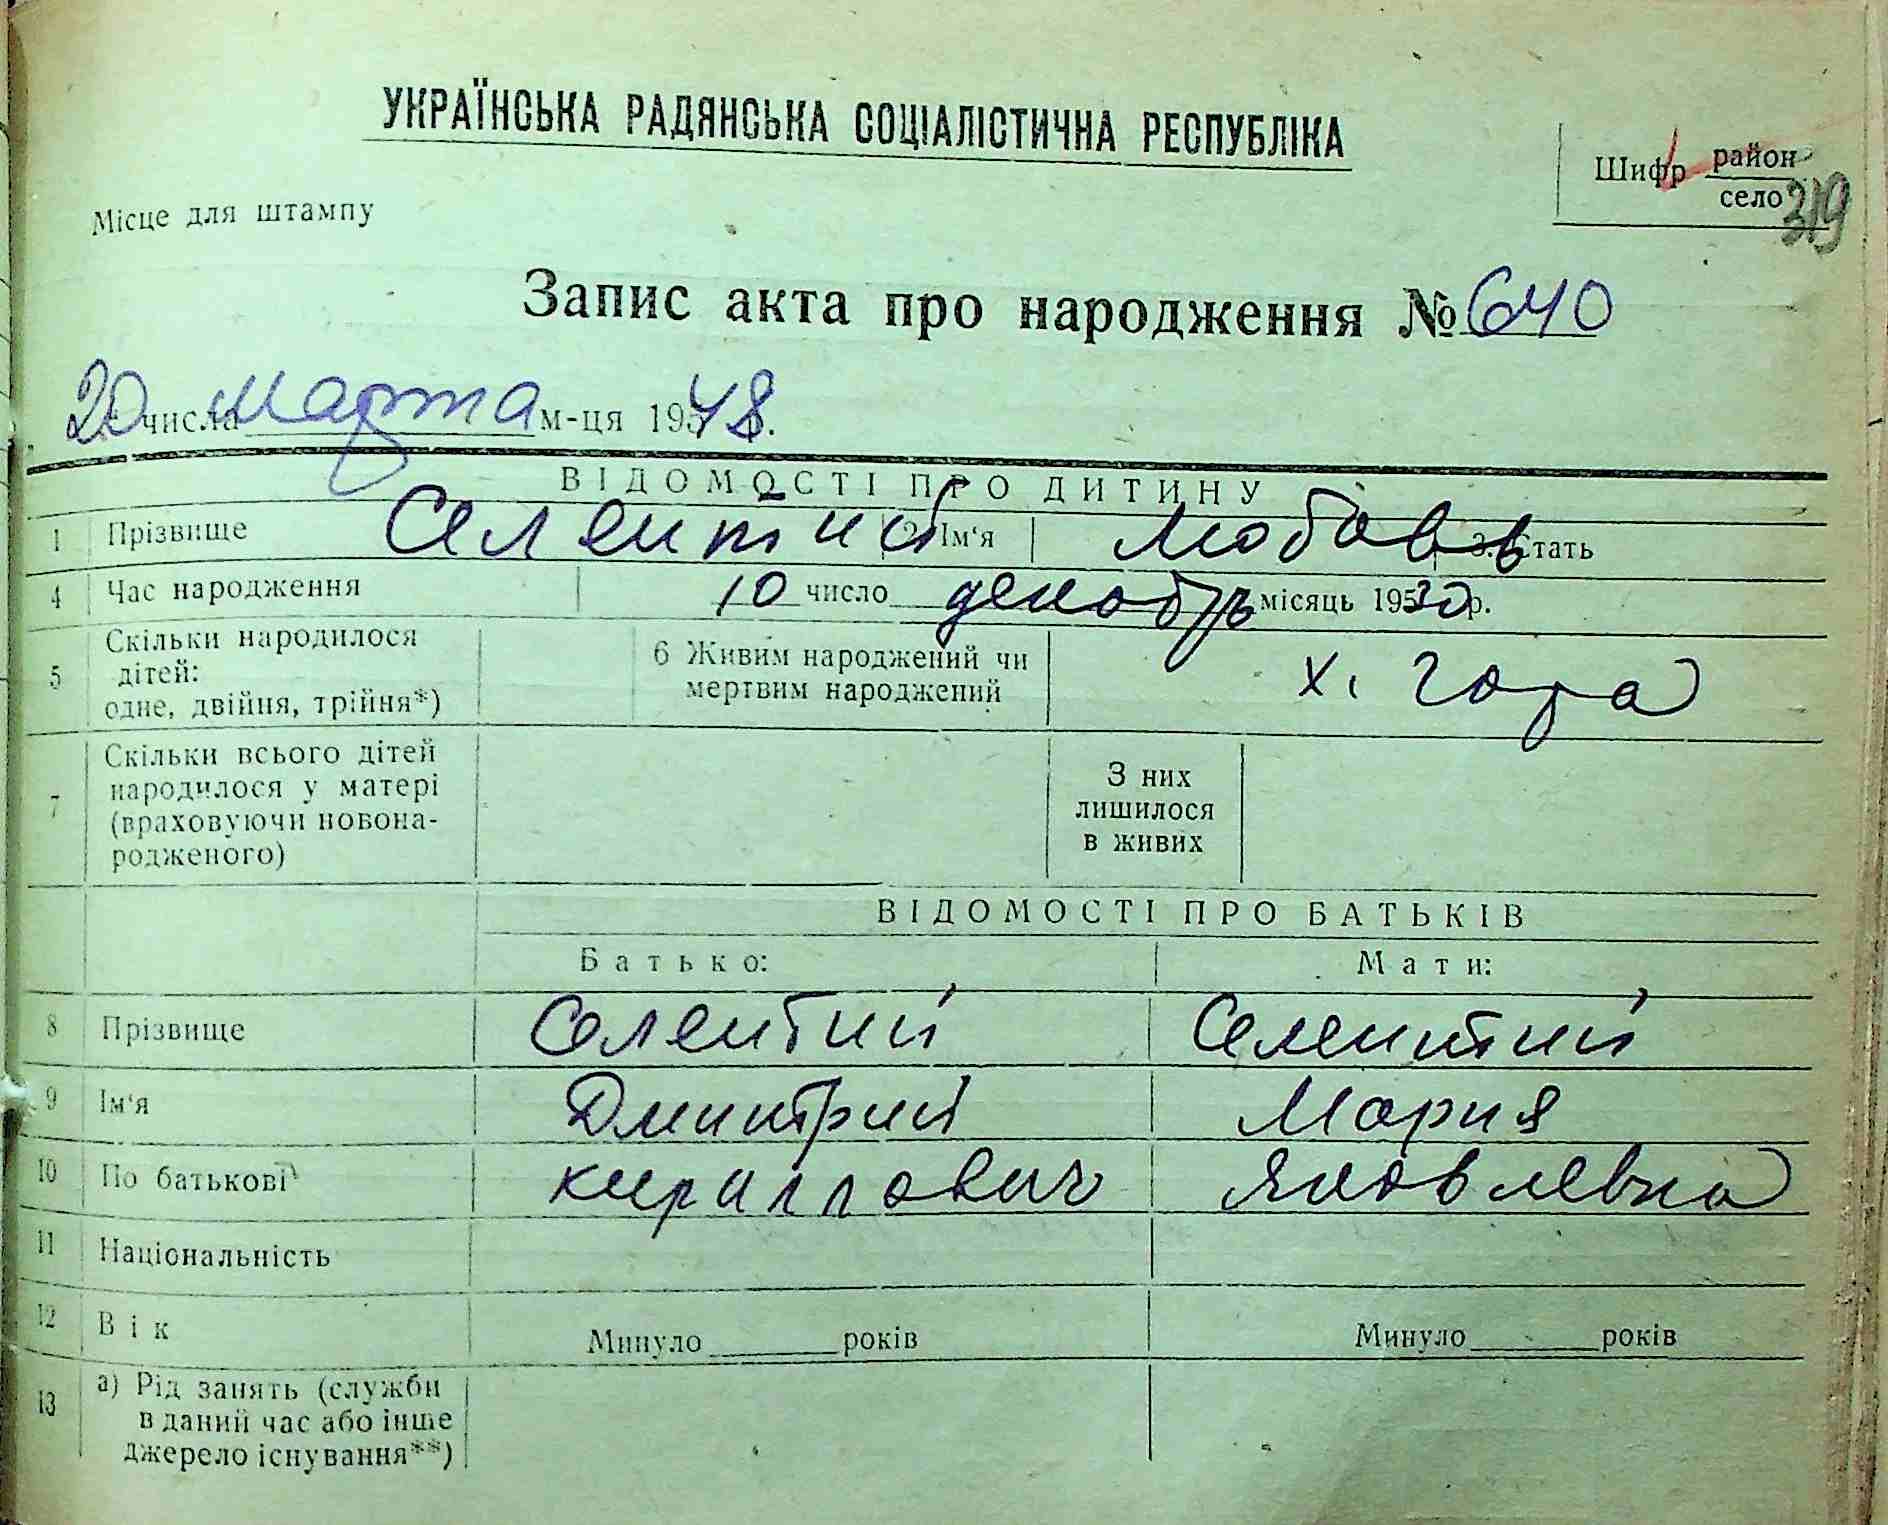 УКРАЇНСЬКА РАДЯНСЬКА СОЦІАЛІСТИЧНА РЕСПУБЛІКА
Шифр район
село 319
Місце для штампу
Запис акта про народження № 640
20 числа марта м-ця 1948.
ВІДОМОСТІ ПРО ДИТИНУ
1 Прізвище Селентий 2. Ім'я Любовь 3. Стать
4 Час народження 10 число декабрь місяць 1930 р.
5 Скільки народилося дітей: одне, двійня, трійня*) 6 Живим народжений чи мертвим народжений х. Гора
7 Скільки всього дітей народилося у матері (враховуючи новонародженого) З них лишилося в живих
ВІДОМОСТІ ПРО БАТЬКІВ
Батько: Мати:
8 Прізвище Селентий Селентий
9 Ім'я Дмитрий Мария
10 По батькові Кириллович Яковлевна
11 Національність
12 Вік Минуло років Минуло років
13 а) Рід занять (служби в даний час або інше джерело існування**)